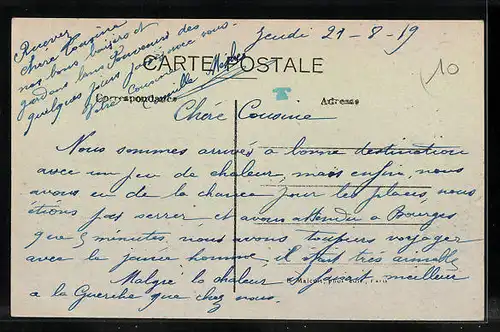 Jeudi 21-8-19
CARTE POSTALE
Correspondance
Adresse
10
T
Chère Cousine
Nous sommes arrivés a bonne destination
avec un peu de chaleur, mais enfin, nous
avons eu de la chance pour les places, nous
étions pas serrer et avons attendu a Bourges
que 5 minutes, nous avons toujours voyager
avec le jeune homme, il était très aimable
Malgré la chaleur il faisait meilleur
a la Guerche que chez nous.
Recevez
chère Cousine
nos bons baisers et
gardons bons Souvenirs des
quelques jours passés avec vous.
Votre Cousine
Camille